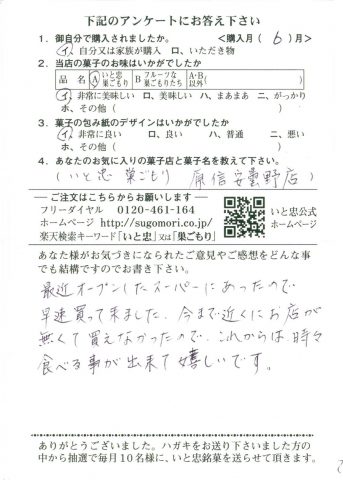 下記のアンケートにお答え下さい
1. 御自分で購入されましたか。 <購入月( 6 )月>
イ、自分又は家族が購入 ロ、いただき物
2. 当店の菓子のお味はいかがでしたか
品 名 A いと忠巣ごもり B フルーツな巣ごもりたち A・B以外
イ、非常に美味しい ロ、美味しい ハ、まあまあ ニ、がっかり
ホ、その他( )
3. 菓子の包み紙のデザインはいかがでしたか
イ、非常に良い ロ、良い ハ、普通 ニ、悪い
ホ、その他( )
4. あなたのお気に入りの菓子店と菓子名を教えて下さい。
(いと忠 巣ごもり 原信安曇野店)
―ご注文はこちらからお願いします―
フリーダイヤル 0120-461-164
ホームページ http://sugomori.co.jp/
楽天検索キーワード「いと忠」又は「巣ごもり」
いと忠公式
ホームページ
あなた様がお気づきになられたご意見やご感想をどんな事
でも結構ですのでお書き下さい。
最近オープンしたスーパーにあったので
早速買って来ました。今まで近くにお店が
無くて買えなかったので、これからは時々
食べる事が出来て嬉しいです。
ありがとうございました。ハガキをお送り下さいました方の
中から抽選で毎月10名様に、いと忠銘菓を送らせて頂きます。